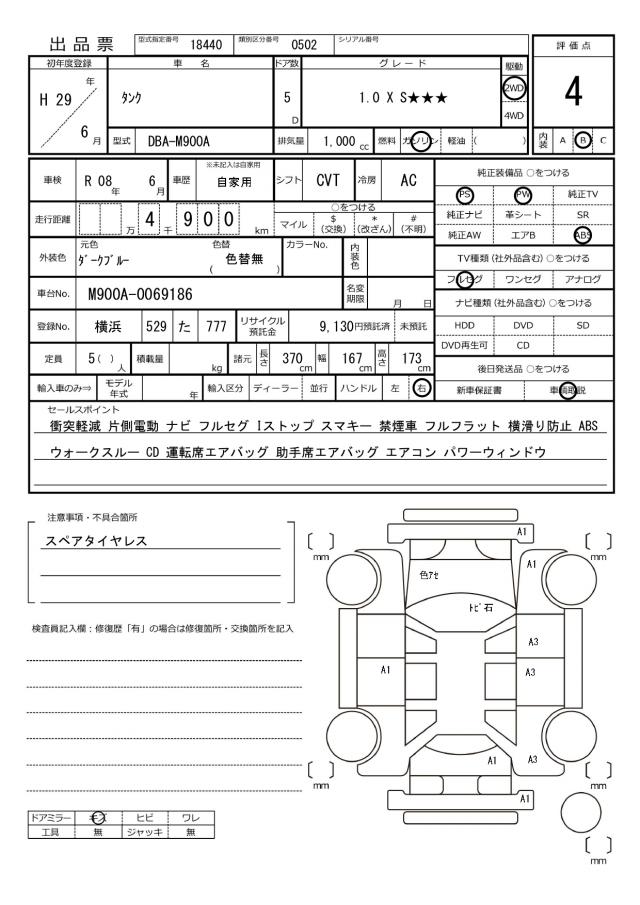 出品票 型式指定番号 18440 類別区分番号 0502 シリアル番号 評価点
初年度登録 車名 ドア数 グレード 駆動 4
H 29 年 6 月 タンク 5 D 1.0 X S★★★ 2WD 4WD
型式 DBA-M900A 排気量 1,000 cc 燃料 ガソリン 軽油 ( ) 内装 A B C
車検 R 08 年 6 月 車歴 ※未記入は自家用 自家用 シフト CVT 冷房 AC
走行距離 万 4 千 9 0 0 km ○をつける
マイル $ (交換) * (改ざん) # (不明)
外装色 元色 ダークブルー 色替 ( 色替無 ) カラーNo. 内装色
車台No. M900A-0069186 名変期限 月 日
登録No. 横浜 529 た 777 リサイクル預託金 9,130円預託済 未預託
定員 5 ( ) 人 積載量 kg 諸元 長さ 370 cm 幅 167 cm 高さ 173 cm
輸入車のみ⇒ モデル年式 年 輸入区分 ディーラー 並行 ハンドル 左 右
純正装備品 ○をつける
PS PW 純正TV
純正ナビ 革シート SR
純正AW エアB ABS
TV種類 (社外品含む) ○をつける
フルセグ ワンセグ アナログ
ナビ種類 (社外品含む) ○をつける
HDD DVD SD
DVD再生可 CD
後日発送品 ○をつける
新車保証書 車輌取説
セールスポイント
衝突軽減 片側電動 ナビ フルセグ Iストップ スマキー 禁煙車 フルフラット 横滑り防止 ABS
ウォークスルー CD 運転席エアバッグ 助手席エアバッグ エアコン パワーウィンドウ
注意事項・不具合箇所
スペアタイヤレス
検査員記入欄：修復歴「有」の場合は修復箇所・交換箇所を記入
A1
〔 〕 mm 〔 〕 mm
A1
色アセ
トビ石
A3
A1 A3
A1 A3
〔 〕 mm 〔 〕 mm
A1
〔 〕 mm
ドアミラー キズ ヒビ ワレ
工具 無 ジャッキ 無